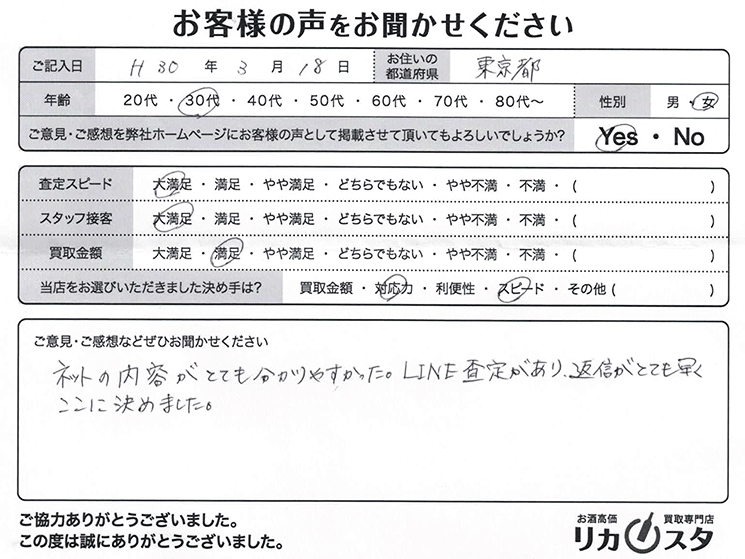 お客様の声をお聞かせください
ご記入日 H 30 年 3 月 18 日 お住いの都道府県 東京都
年齢 20代・30代・40代・50代・60代・70代・80代〜 性別 男・女
ご意見・ご感想を弊社ホームページにお客様の声として掲載させて頂いてもよろしいでしょうか? Yes・No
査定スピード 大満足・満足・やや満足・どちらでもない・やや不満・不満・( )
スタッフ接客 大満足・満足・やや満足・どちらでもない・やや不満・不満・( )
買取金額 大満足・満足・やや満足・どちらでもない・やや不満・不満・( )
当店をお選びいただきました決め手は? 買取金額・対応力・利便性・スピード・その他( )
ご意見・ご感想などぜひお聞かせください
ネットの内容がとても分かりやすかった。LINE査定があり、返信がとても早く
ここに決めました。
ご協力ありがとうございました。
この度は誠にありがとうございました。
お酒高価 買取専門店
リカスタ